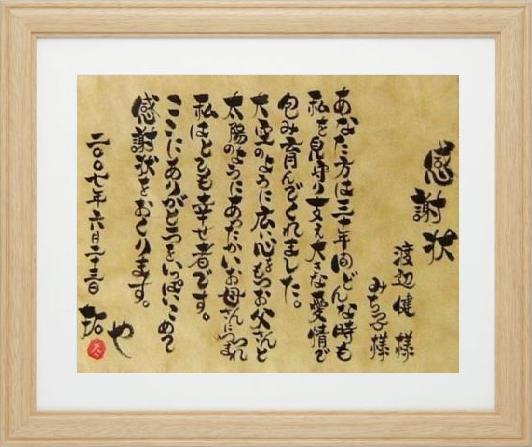 感謝状
渡辺健 様
みち子様
あなた方は三十年間どんな時も
私を見守り支え大きな愛情で
包み育んでくれました。
大空のように広い心をもつお父さんと
太陽のようにあったかいお母さんにつつまれ
私はとても幸せ者です。
ここにありがとうをいっぱいこめて
感謝状をおくります。
二〇〇七年 六月二十三日
拓や